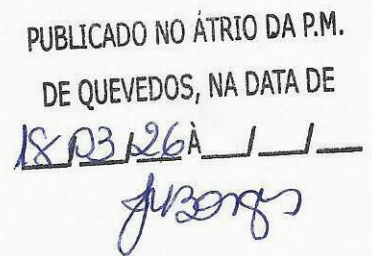 PUBLICADO NO ÁTRIO DA P.M.
DE QUEVEDOS, NA DATA DE
18/03/26 À __/__/__